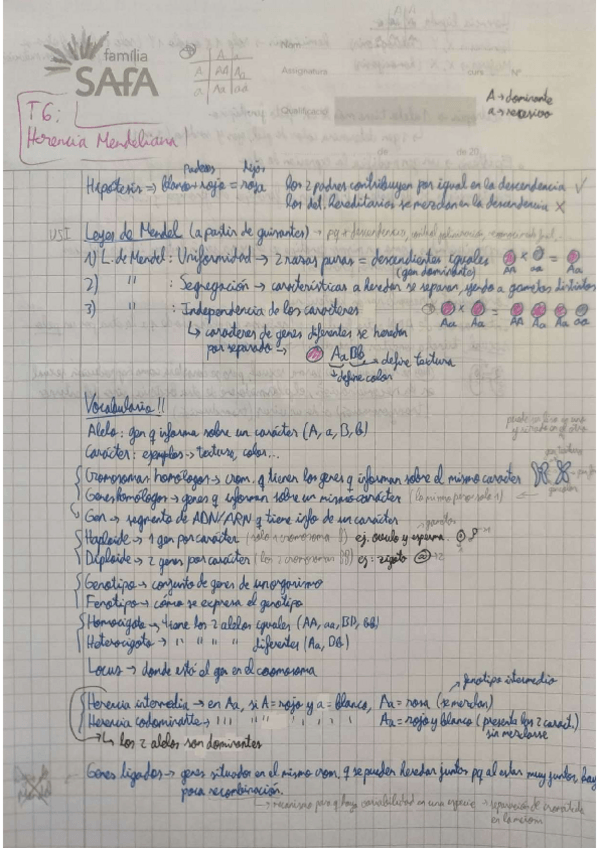 familia
SAFA
Nom
Assignatura
Qualificació
de 20
A a
a AA Aa
a Aa aa
A → dominante
a → recesivo
T6:
Herencia Mendeliana!
padres hijos
Hipótesis => blanco + rojo = rosa los 2 padres contribuyen por igual en la descendencia ✓
los det. hereditarios se mezclan en la descendencia X
Leyes de Mendel (a partir de guisantes) → pq ↑ descendencia, control polinización,
1) L. de Mendel: Uniformidad → 2 razas puras = descendientes iguales
(gen dominante)
AA x aa = Aa
2) " : Segregación → características a heredar se separan, yendo a gametos distintos
3) " : Independencia de los caracteres
Aa x Aa = AA Aa Aa aa
↳ caracteres de genes diferentes se heredan
por separado → Aa Bb → define textura
↓ define color
Vocabulario!!
Alelo: gen q informa sobre un carácter (A, a, B, b)
Carácter: ejemplos → textura, color...
Cromosomas homólogos → crom. q tienen los genes q informan sobre el mismo carácter
Genes homólogos → genes q informan sobre un mismo carácter (lo mismo pero solo 1)
Gen → segmento de ADN/ARN q tiene info de un carácter
→ gametos
Haploide → 1 gen por carácter (solo 1 cromosoma) ej. óvulo y esperma
Diploide → 2 genes por carácter (los 2 cromosomas) ej: zigoto
Genotipo → conjunto de genes de un organismo
Fenotipo → cómo se expresa el genotipo
Homocigoto → tiene los 2 alelos iguales (AA, aa, BB, bb)
Heterocigoto → " " " " diferentes (Aa, Bb)
Locus → donde está el gen en el cromosoma
fenotipo intermedio
Herencia intermedia → en Aa, si A = rojo y a = blanco, Aa = rosa (se mezclan)
Herencia codominante → " " " " " " Aa = rojo y blanco (presenta los 2 caract.)
sin mezclarse
↳ los 2 alelos son dominantes
Genes ligados → genes situados en el mismo crom. q se pueden heredar juntos pq al estar muy juntos, hay
poca recombinación.
↳ mecanismo para q haya variabilidad en una especie → separación de cromátida